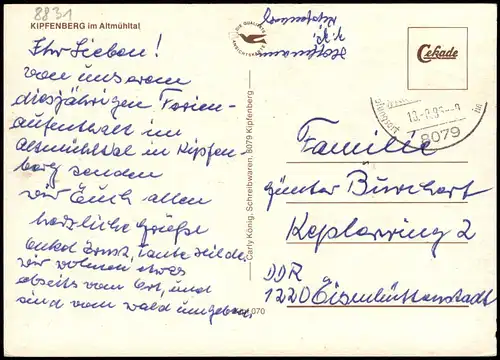 8831
KIPFENBERG im Altmühltal
Ihr Lieben!
von unserem
diesjährigen Ferien-
aufenthalt im
Altmühltal in Kipfen-
berg senden
wir Euch allen
herzliche Grüße
Onkel Ernst, Tante Hilde
wir wohnen etwas
abseits vom Ort, und
sind vom Wald umgeben.
Carly König, Schreibwaren, 8079 Kipfenberg
070
DIE QUALITÄTS
ANSICHTSKARTE
z. Zt.
Kipfenberg
Cekade
8079
Familie
Günter Burchert
Keplerring 2
DDR
1220 Eisenhüttenstadt